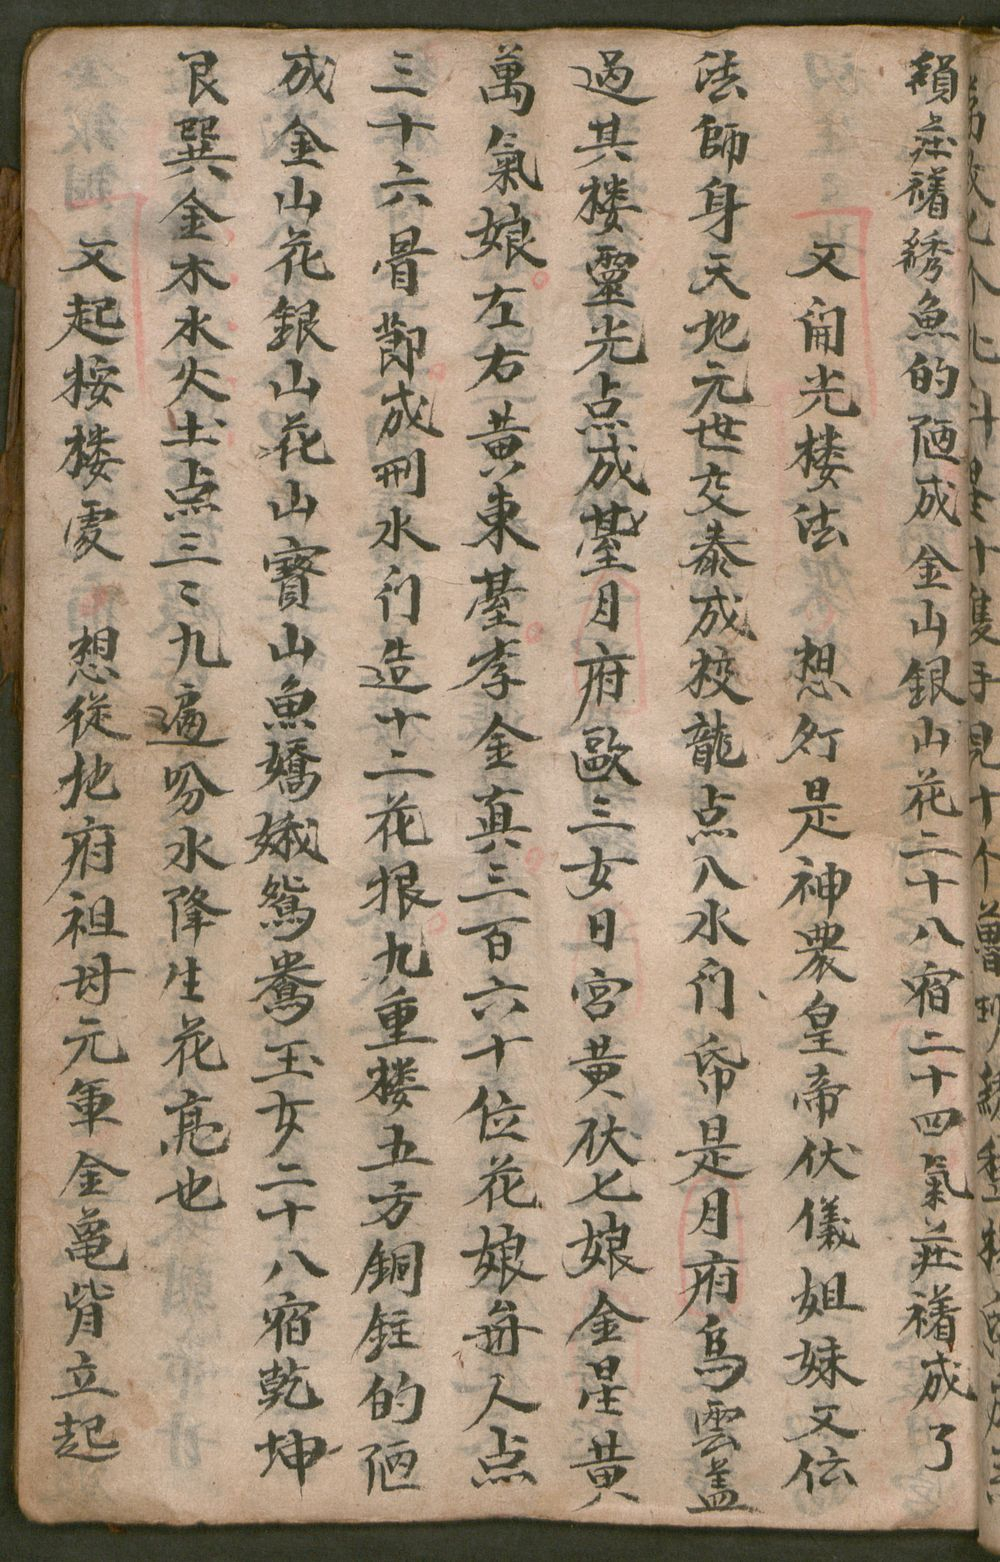 頛莊禇綉魚的陋成金山銀山花二十八宿二十四氣莊禇成了
又開光楼法 想行是神農皇帝伏儀姐妹又伝
法師身天地元世交泰成校龍点八水门帋是月府烏雲盖
过其楼靈光点成䑓月府歐三女日宮黄伏七娘金星黄
萬氣娘左右黄東䑓李金真三百六十位花娘毎人点
三十六骨節成刑水门造十二花根九重楼五方銅鉒的陋
成金山花銀山花山寶山魚嬌娥鴛鴦玉女二十八宿乾坤
艮巽金木水火土点三〻九遍吩水降生花亮也
又起按楼处 想從地府祖母元軍金亀背立起